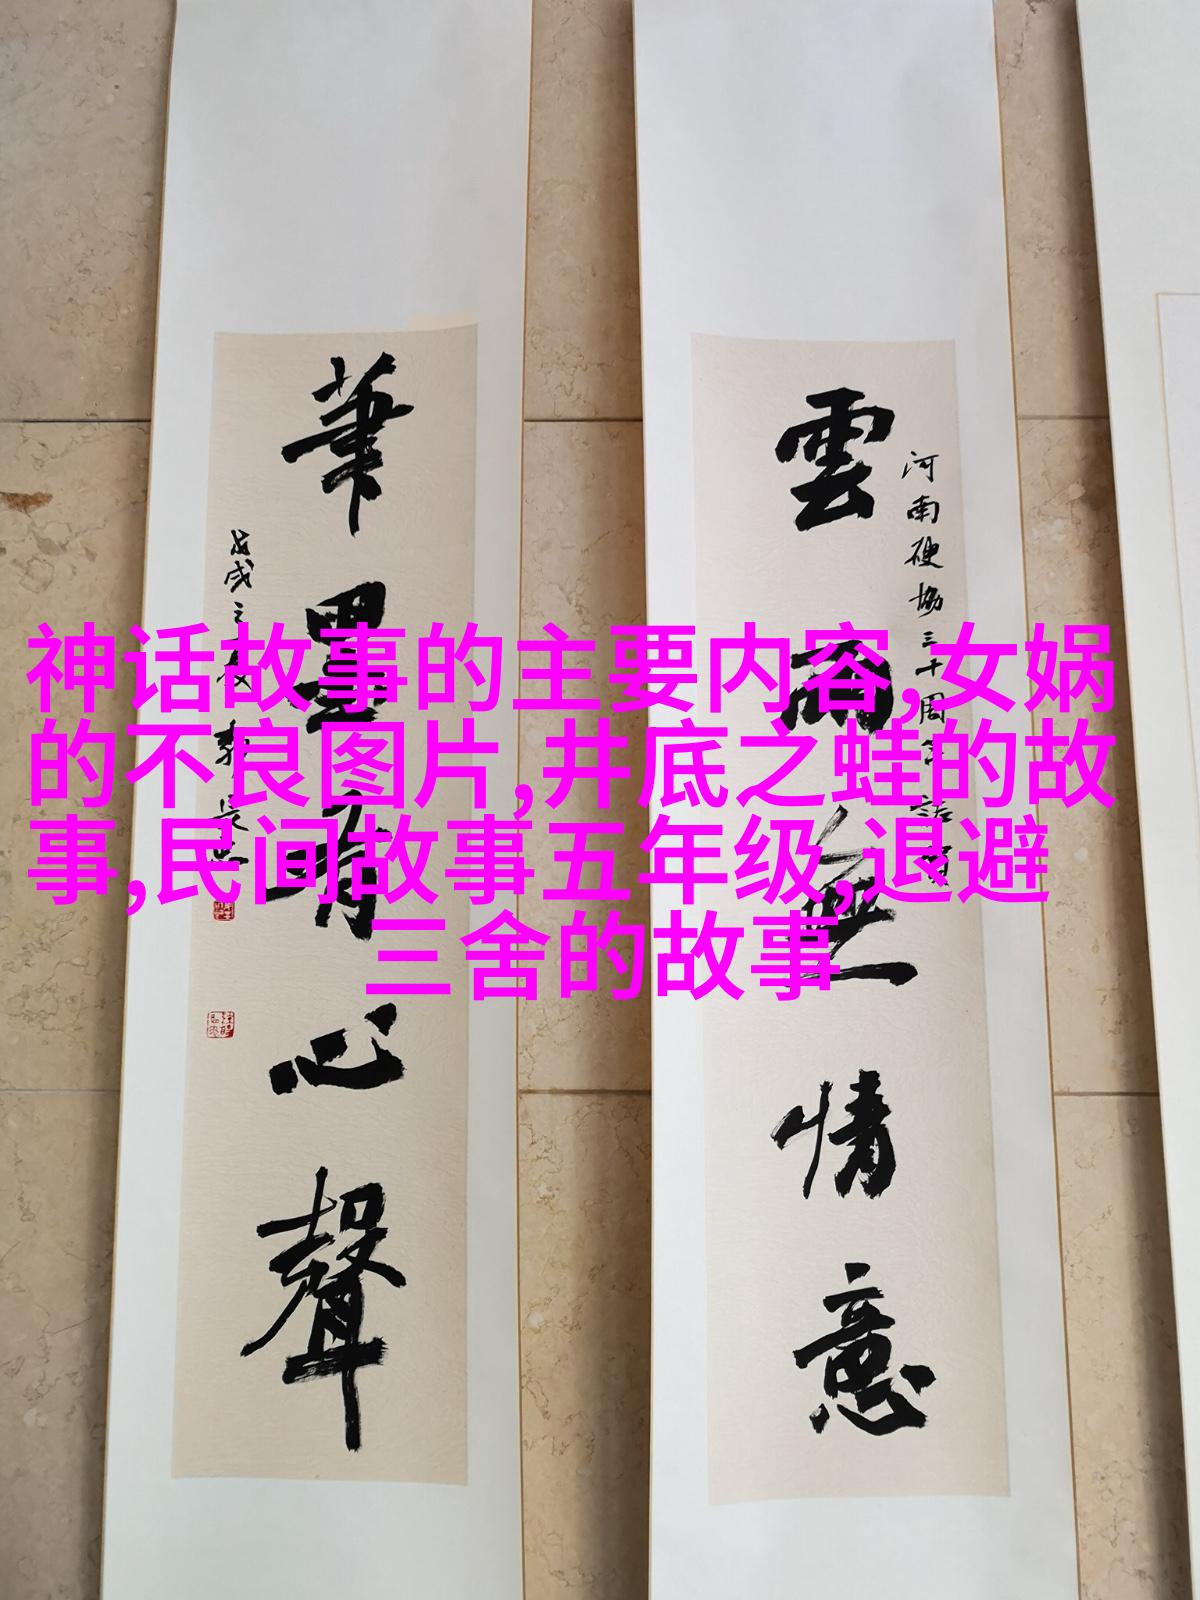 神话故事的主要内容,女娲
的不良图片,井底之蛙的故
事,民间故事五年级,退避
三舍的故事
河南硬协三十周年
雲雨無情意
筆墨有心聲
戊戌之夏